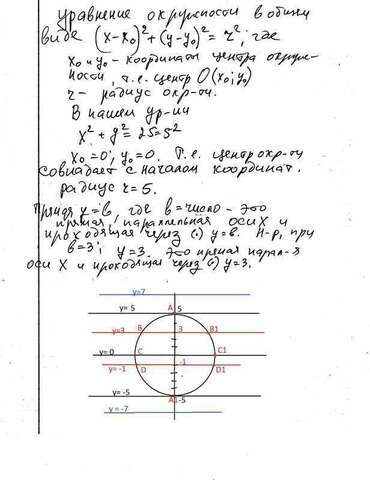 Уравнение окружности в общем
виде (x-x₀)²+(y-y₀)²=r², где
x₀ и y₀ - координаты центра окруж-
ности, т.е. центр O(x₀;y₀)
r - радиус окр-ти.
В нашем ур-ии
x²+y²=25=5²
x₀=0; y₀=0. Т.е. центр окр-ти
совпадает с началом координат.
радиус r=5.
Прямая y=b, где b=число - это
прямая, параллельная оси x и
проходящая через (.) y=b. Н-р, при
b=3; y=3. это прямая парал-я
оси X и проходящая через (.) y=3.
y=7
y= 5 A 5
y=3 B 3 B1
y= 0 C C1
y= -1 D -1 D1
y= -5 A1-5
y = -7